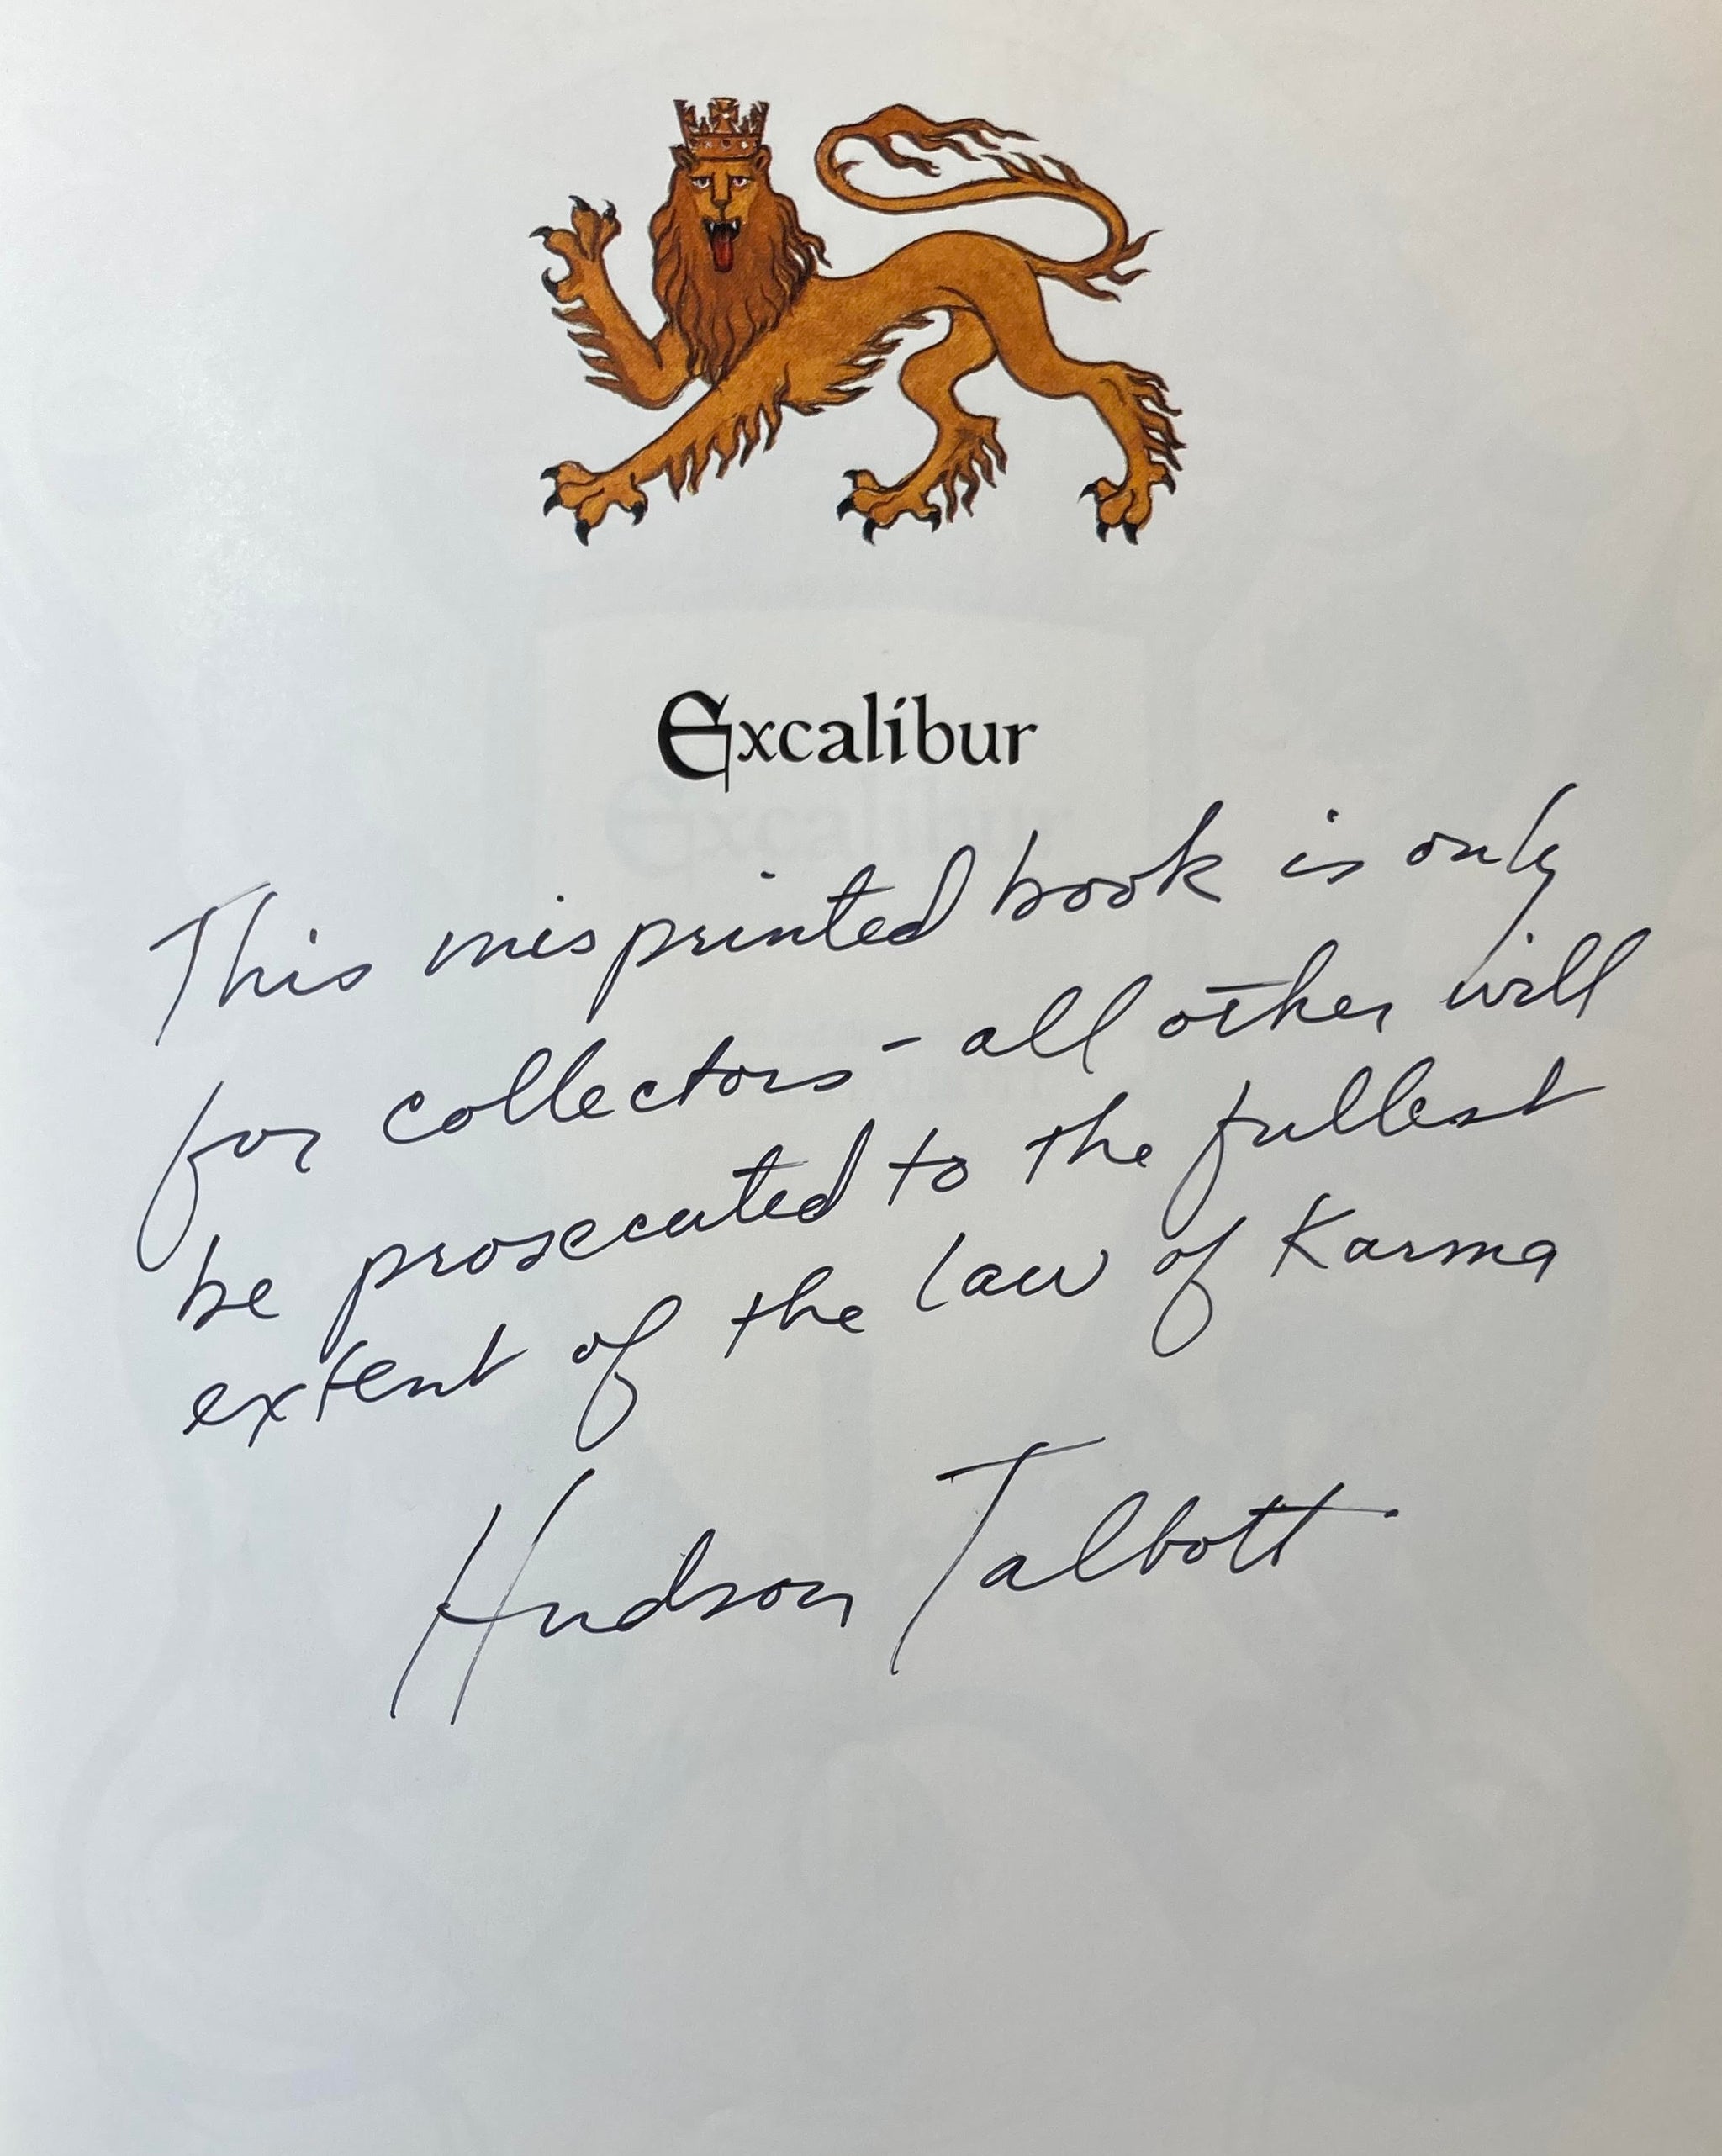 Excalibur
This misprinted book is only
for collectors - all other will
be prosecuted to the fullest
extent of the law of Karma
Hudson Talbott